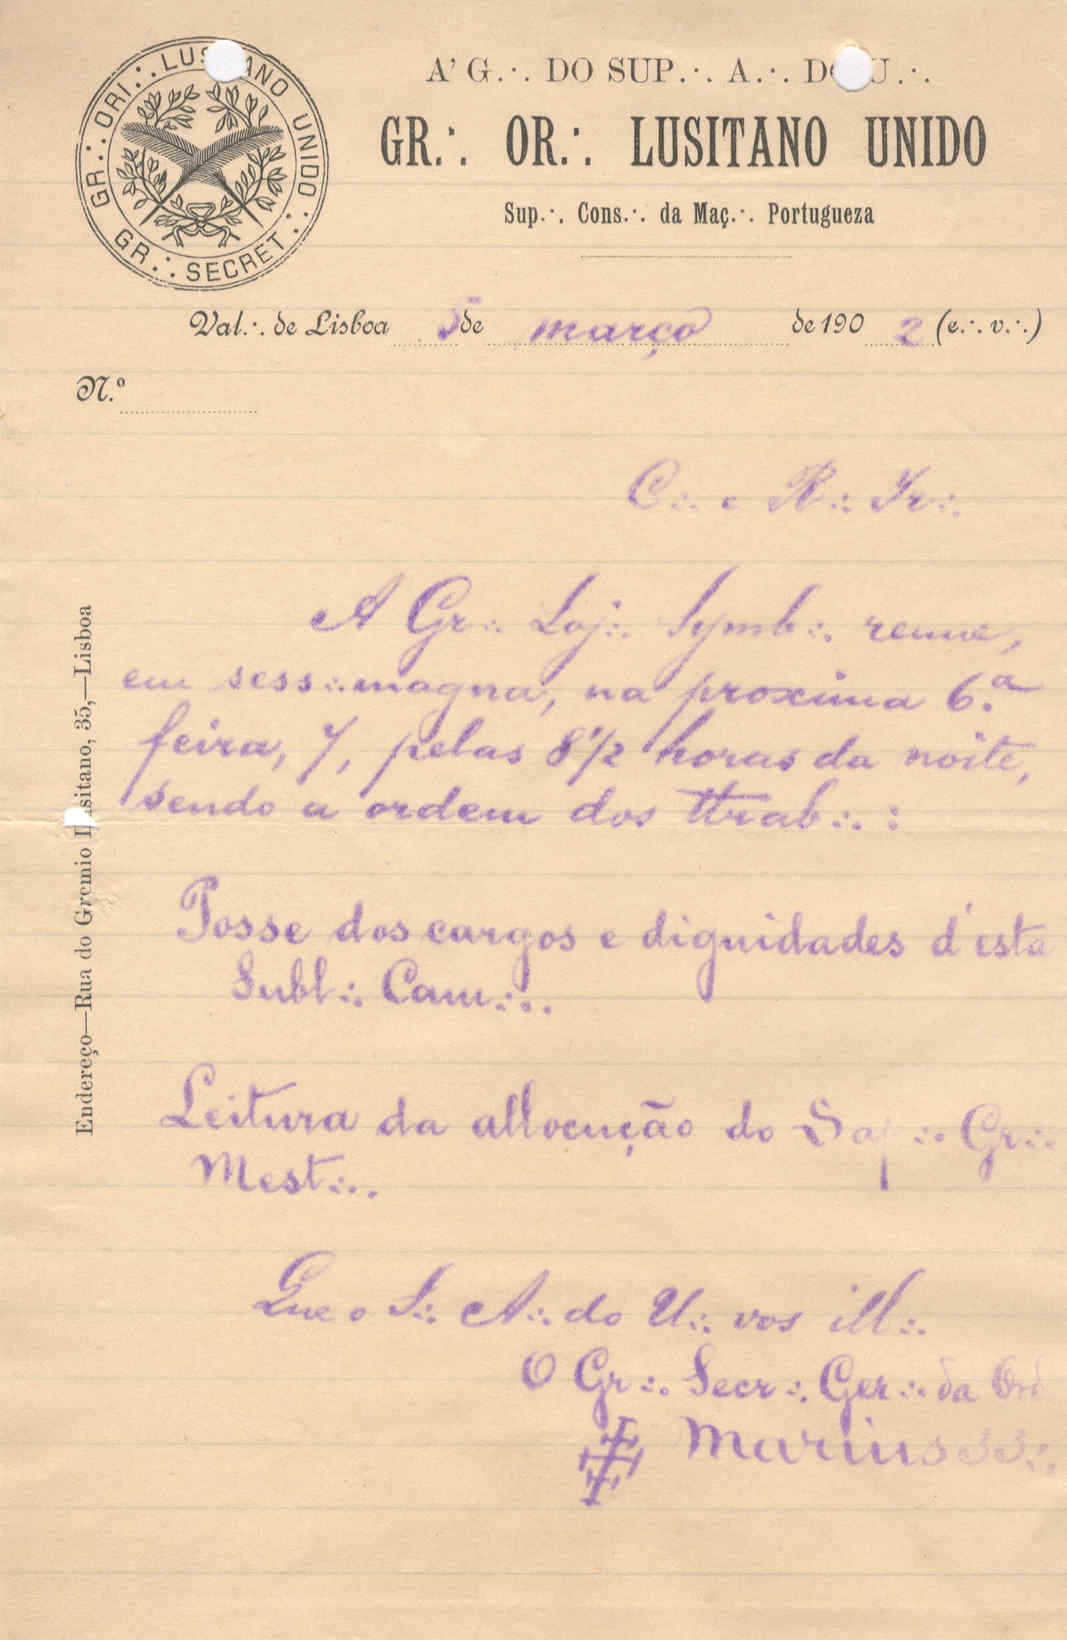 GR.∴ ORI.∴ LUSITANO UNIDO.∴
GR.∴ SECRET.∴
A' G.∴ DO SUP.∴ A.∴ DO U.∴
GR.∴ OR.∴ LUSITANO UNIDO
Sup.∴ Cons.∴ da Maç.∴ Portugueza
Val.∴ de Lisboa 5 de março de 1902 (e.∴ v.∴)
N.º
C∴ e R∴ Ir∴
A Gr∴ Loj∴ Symb∴ reune,
em sess∴ magna, na proxima 6.ª
feira, 7, pelas 8 1/2 horas da noite,
sendo a ordem dos ttrab∴ :
Posse dos cargos e dignidades d'esta
Subl∴ Cam∴.
Leitura da allocução do Sap∴ Gr∴
Mest∴.
Que o S∴ A∴ do U∴ vos ill∴
O Gr∴ Secr∴ Ger∴ da Ord
Marius 33∴
Endereço—Rua do Gremio Lusitano, 35,—Lisboa